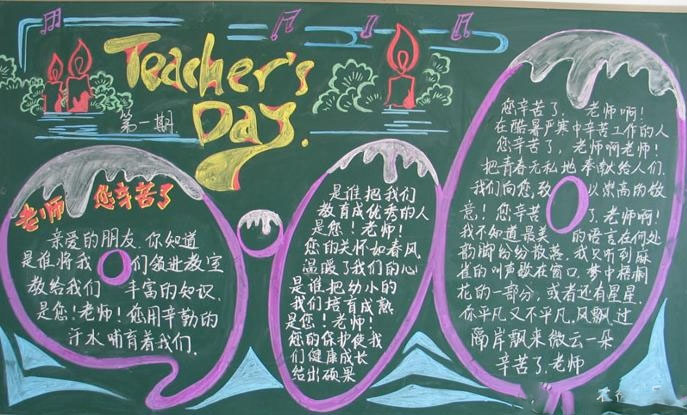 Teacher's
Day.
第一期
老师 您辛苦了
亲爱的朋友 你知道
是谁将我们领进教室
教给我们丰富的知识.
是您!老师!您用辛勤的
汗水哺育着我们.
是谁把我们
教育成优秀的人
是您!老师!
您的关怀如春风
温暖了我们的心
是谁把幼小的
我们培育成熟
是您!老师!
您的保护使我
们健康成长
结出硕果
您辛苦了,老师啊!
在酷暑严寒中辛苦工作的人
您辛苦了,老师啊老师!
把青春无私地奉献给人们.
我们向您致以崇高的敬
意!您辛苦了.老师啊!
我不知道最美的语言在何处
韵脚纷纷散落.我又听到麻
雀的叫声歇在窗口.梦中梧桐
花的一部分,或者还有星星.
你平凡又不平凡.风飘过
隔岸飘来微云一朵
辛苦了.老师